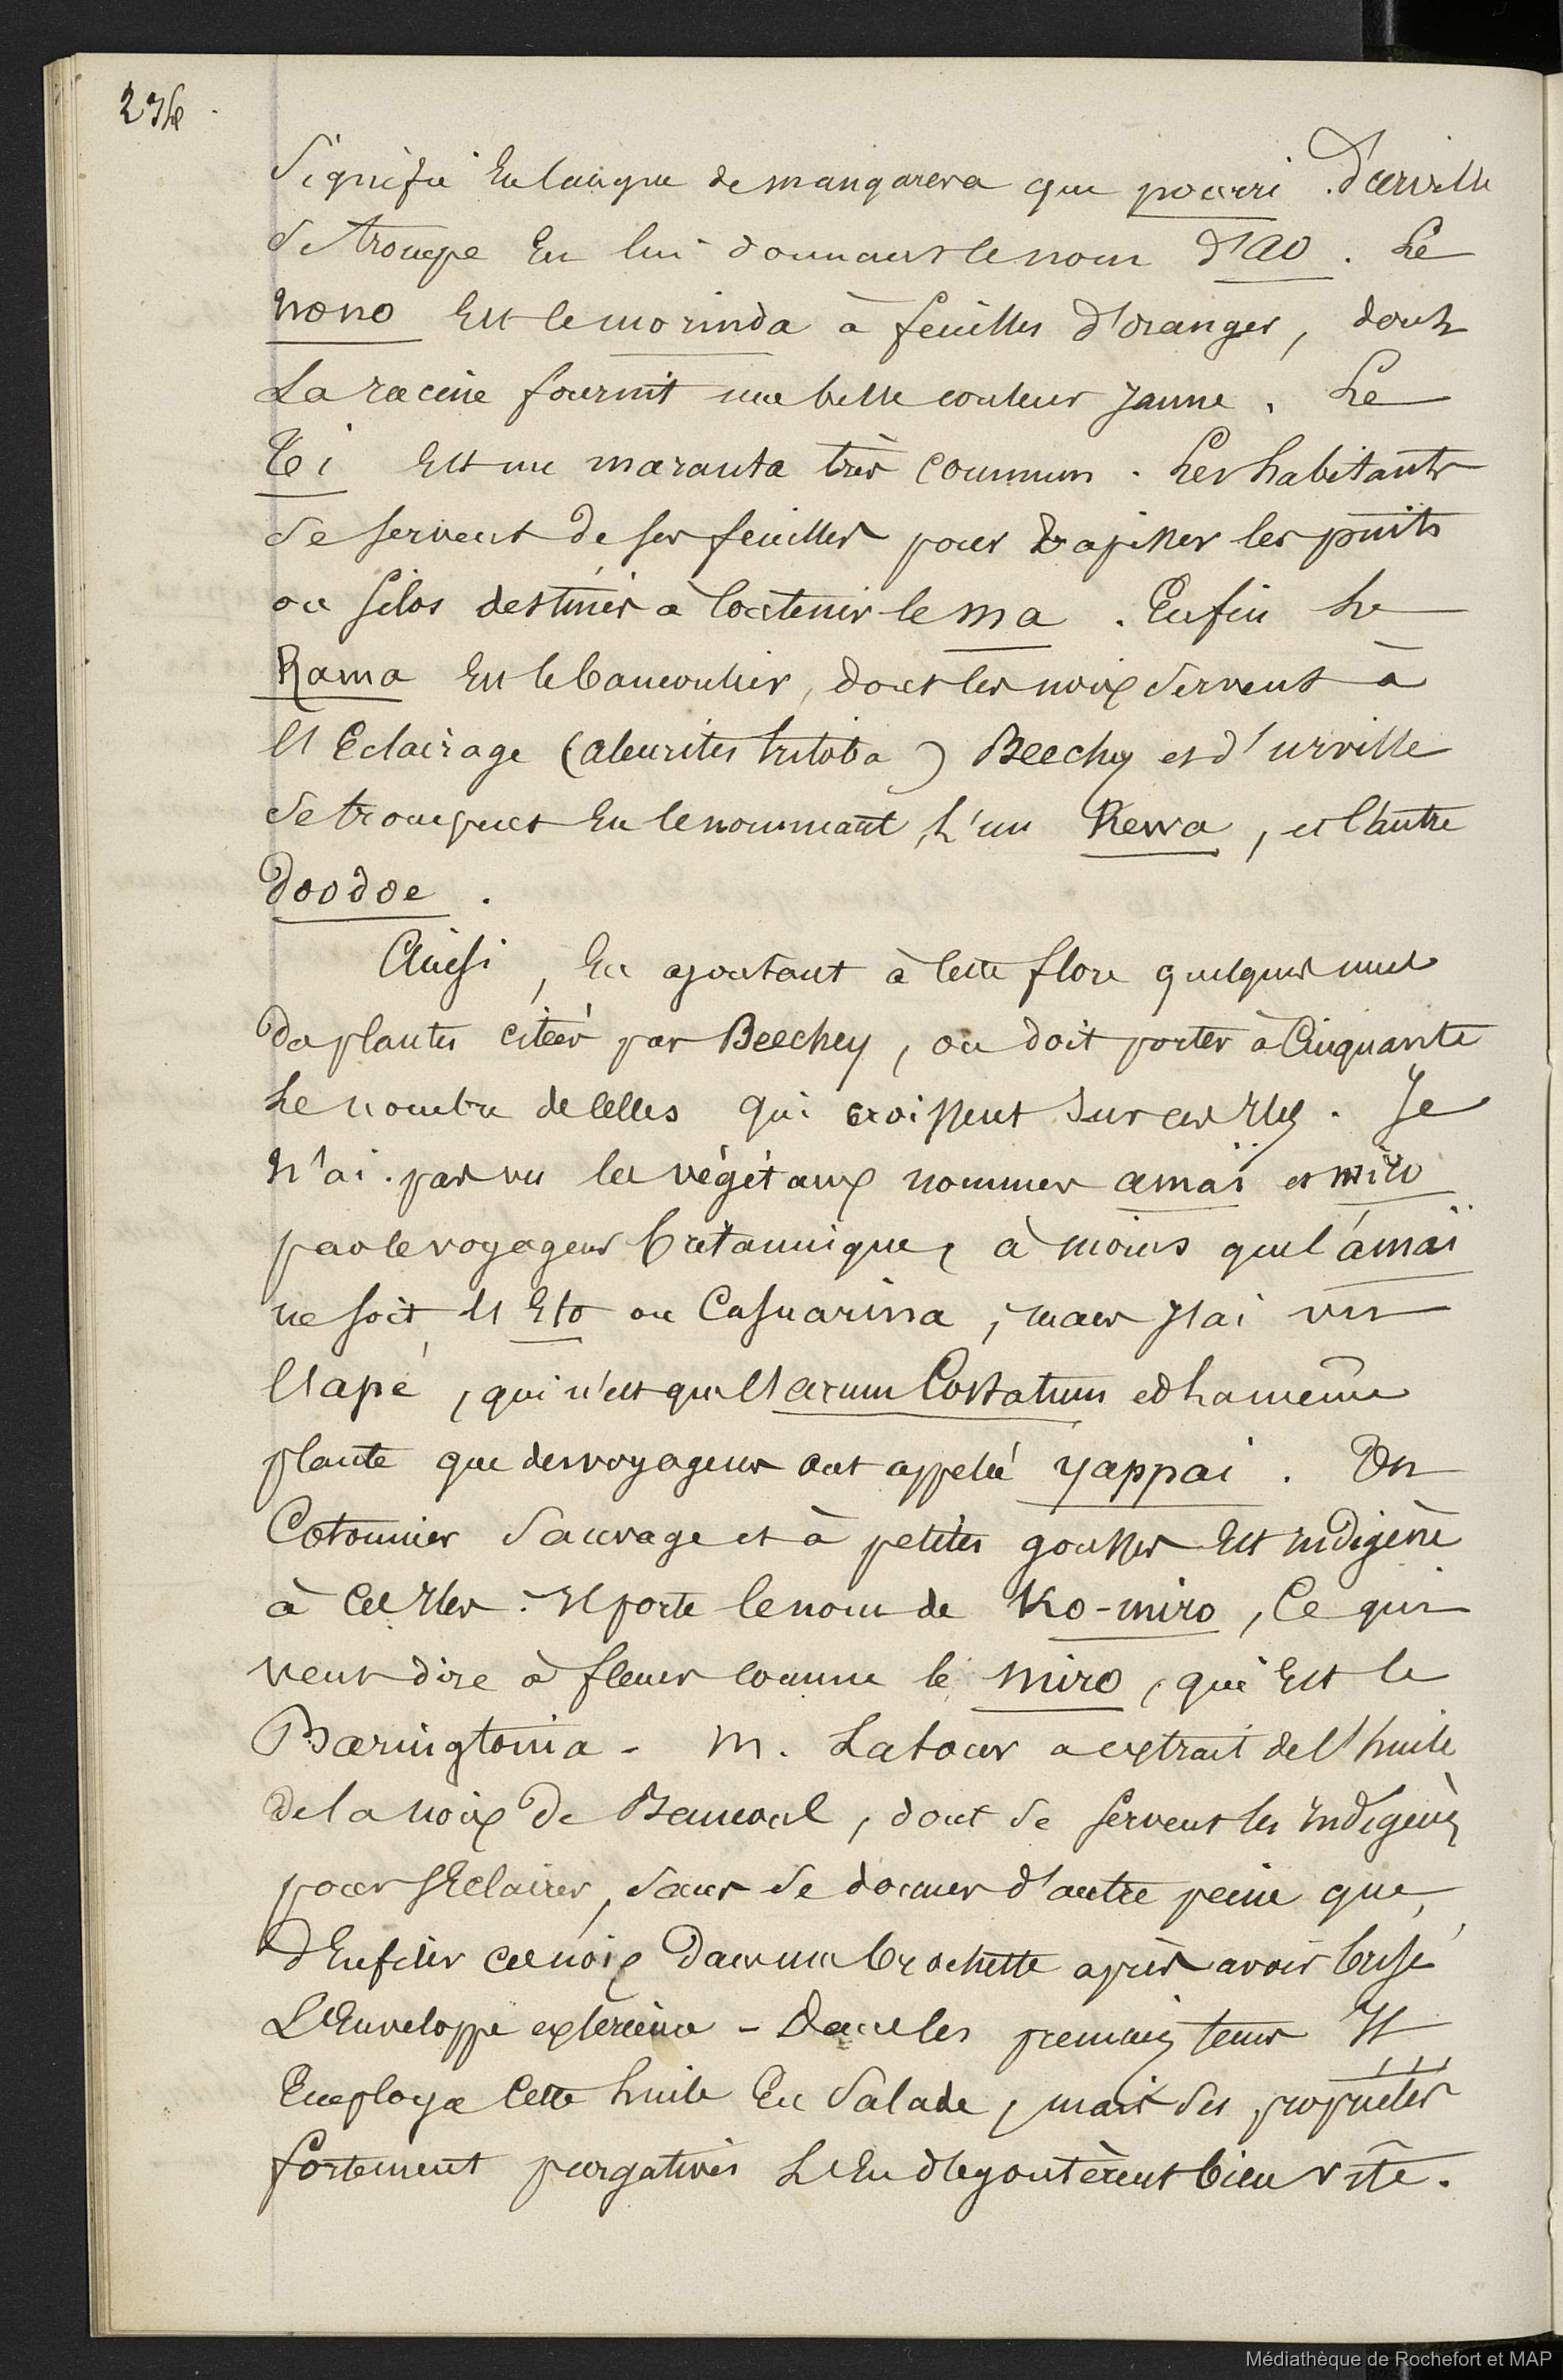 236.
Signifie En langue de mangareva que pourri. D'urville
Se trompe En lui donnant le nom d'ao. Le
nono Est le morinda à feuilles d'oranger, dont
La racine fournit une belle couleur Jaune. Le
Ti Est un maranta très commun. Les habitants
Se servent de ses feuilles pour tapisser les puits
ou silos destinés à Contenir le ma. Enfin Le
Rama Est le bancoulier, dont les noix Servent à
l'Eclairage (aleurites triloba) Beechy et d'urville
Se trompent En le nommant, L'un Rewa, et l'autre
doodoe.
Ainsi, En ajoutant à Cette flore quelques unes
des plantes citées par Beechey, on doit porter à Cinquante
Le nombre de Celles qui croissent Sur ces Iles. Je
N'ai pas vu les végétaux nommés amaï et miro
par le voyageur britannique, à moins que l'amaï
ne soit l'Eto ou Casuarina; mais J'ai vu
l'apé, qui n'est que l'arum Costatum et La même
plante que des voyageurs ont appelé yappai. Un
Cotonnier Sauvage et à petites gousses Est indigène
à Ces Iles. Il porte le nom de Ko-miro, Ce qui
veut dire à fleurs comme le miro, qui Est le
Baringtonia - M. Latour a extrait de l'huile
de la noix de Bancoul, dont Se servent les indigènes
pour s'Eclairer, Sans Se donner d'autre peine que
d'Enfiler ces noix Dans une brochette après avoir brisé
L'Enveloppe extérieure - Dans les premiers tems Il
Employa Cette huile En Salade, mais Ses propriétés
fortement purgatives L'En dégoutèrent bien vîte.
Médiathèque de Rochefort et MAP